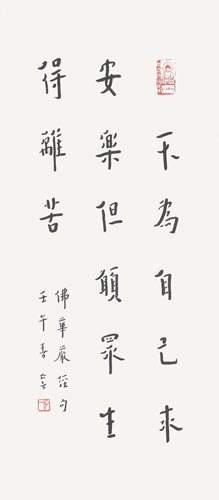 不為自己求
安樂但願眾生
得離苦
佛華嚴經句
壬午喜定